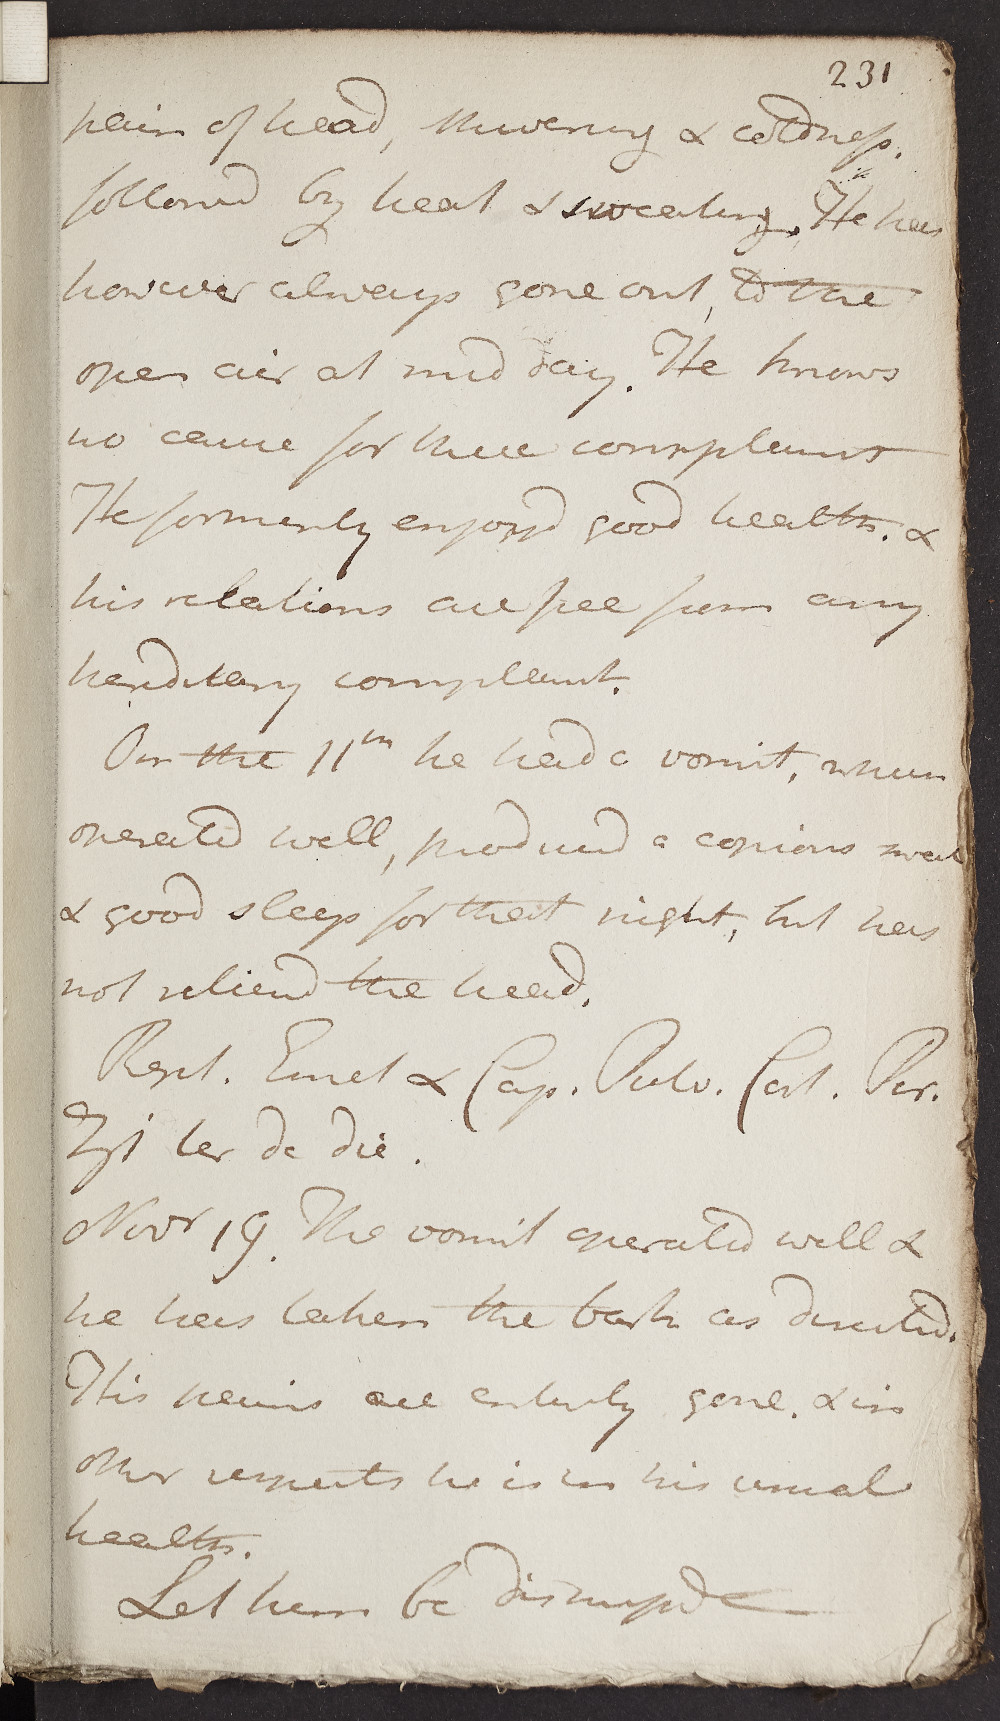 231
pain of head, shivering & coldness.
followed by heat & sweating. He has
however always gone out, to the
open air at mid day. He knows
no cause for these complaints
He formerly enjoy'd good health. &
his relations are free from any
hereditary complaint.
On the 11th he had a vomit, which
operated well, produced a copious sweat
& good sleep for that night, but has
not reliev'd the head.
Rept. Emet & Cap. Pulv. Cort. Per.
ʒſs ter de die.
Novr 19. The vomit operated well &
he has taken the bark as directed.
His pains are entirely gone. & in
other respects he is in his usual
health.
Let him be dismiss'd